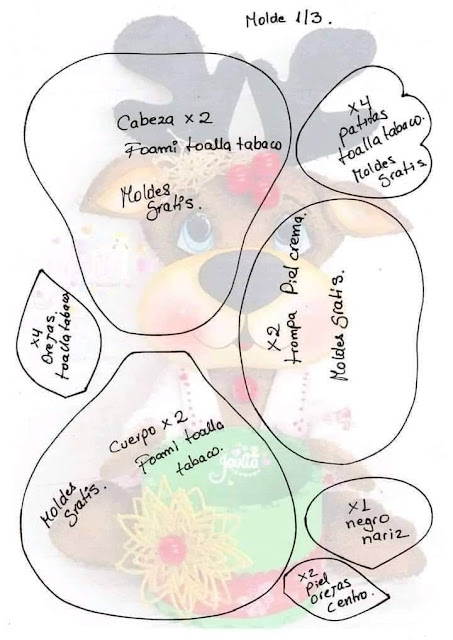 Molde 1/3.
Cabeza x 2
Foami toalla tabaco
Moldes
Gratis.
x4
patitas
toalla tabaco.
Moldes
Gratis
x2
trompa Piel crema.
Moldes Gratis.
x4
Orejas
toalla tabaco
Cuerpo x 2
Foami toalla
tabaco.
Moldes
Gratis.
x1
negro
nariz
x2
piel
orejas
centro.